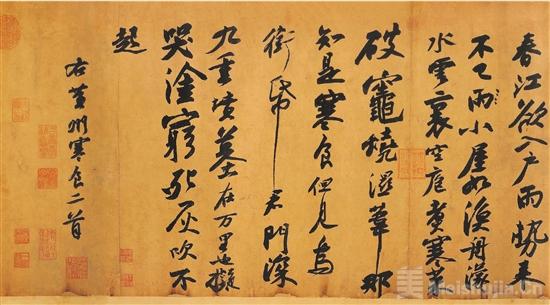 春江欲入戶雨勢來
不已雨小屋如漁舟濛々
水雲裏空庖煮寒菜
破竈燒濕葦那
知是寒食但見烏
銜帋君門深
九重墳墓在万里也擬
哭塗窮死灰吹不
起
右黃州寒食二首
Meishujia.cn